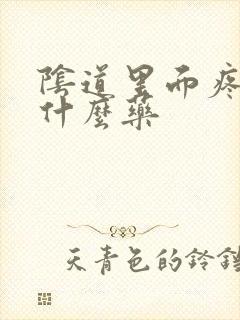 陰道里而疼
什麼藥
天青色的鈴鐺